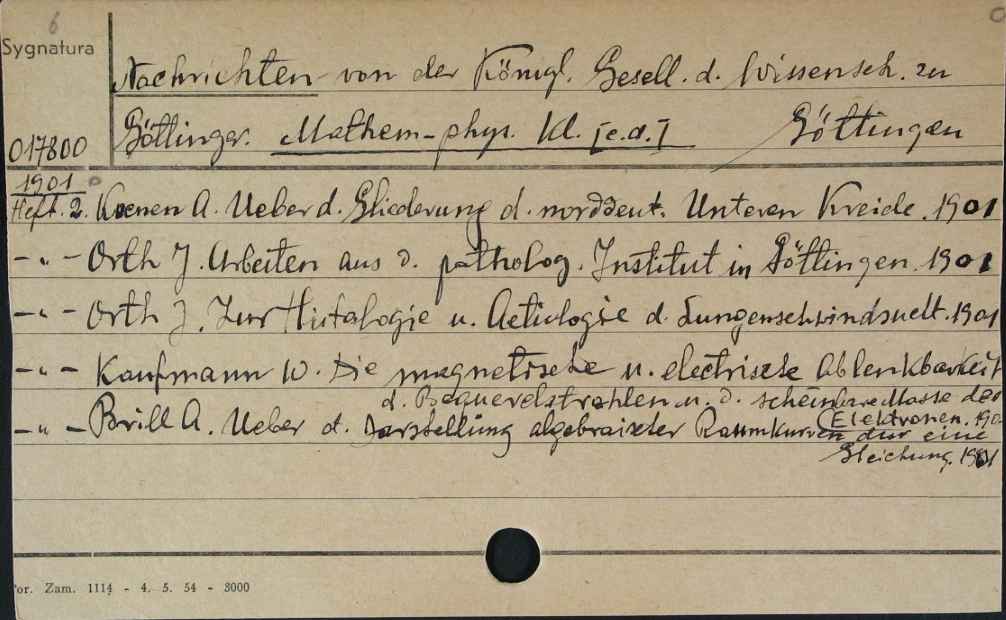 6
Sygnatura
Nachrichten von der Königl. Gesell. d. Wissensch. zu
017800 Göttinger. Mathem-phys. Kl. [e.d.] Göttingen
1901
Heft. 2. Koenen A. Ueber d. Gliederung d. norddeut. Unteren Kreide. 1901
-"- Orth J. Arbeiten aus d. patholog. Institut in Göttingen. 1901
-"- Orth J. Zur Histologie u. Aetiologie d. Lungenschwindsucht. 1901
-"- Kaufmann W. Die magnetische u. electrische Ablenkbarkeit
d. Bequerelstrahlen u. d. scheinbare Masse der
Elektronen. 190
-"- Brill A. Ueber d. Darstellung algebraischer Raumkurven dur eine
Gleichung. 1901
or. Zam. 1114 - 4. 5. 54 - 3000